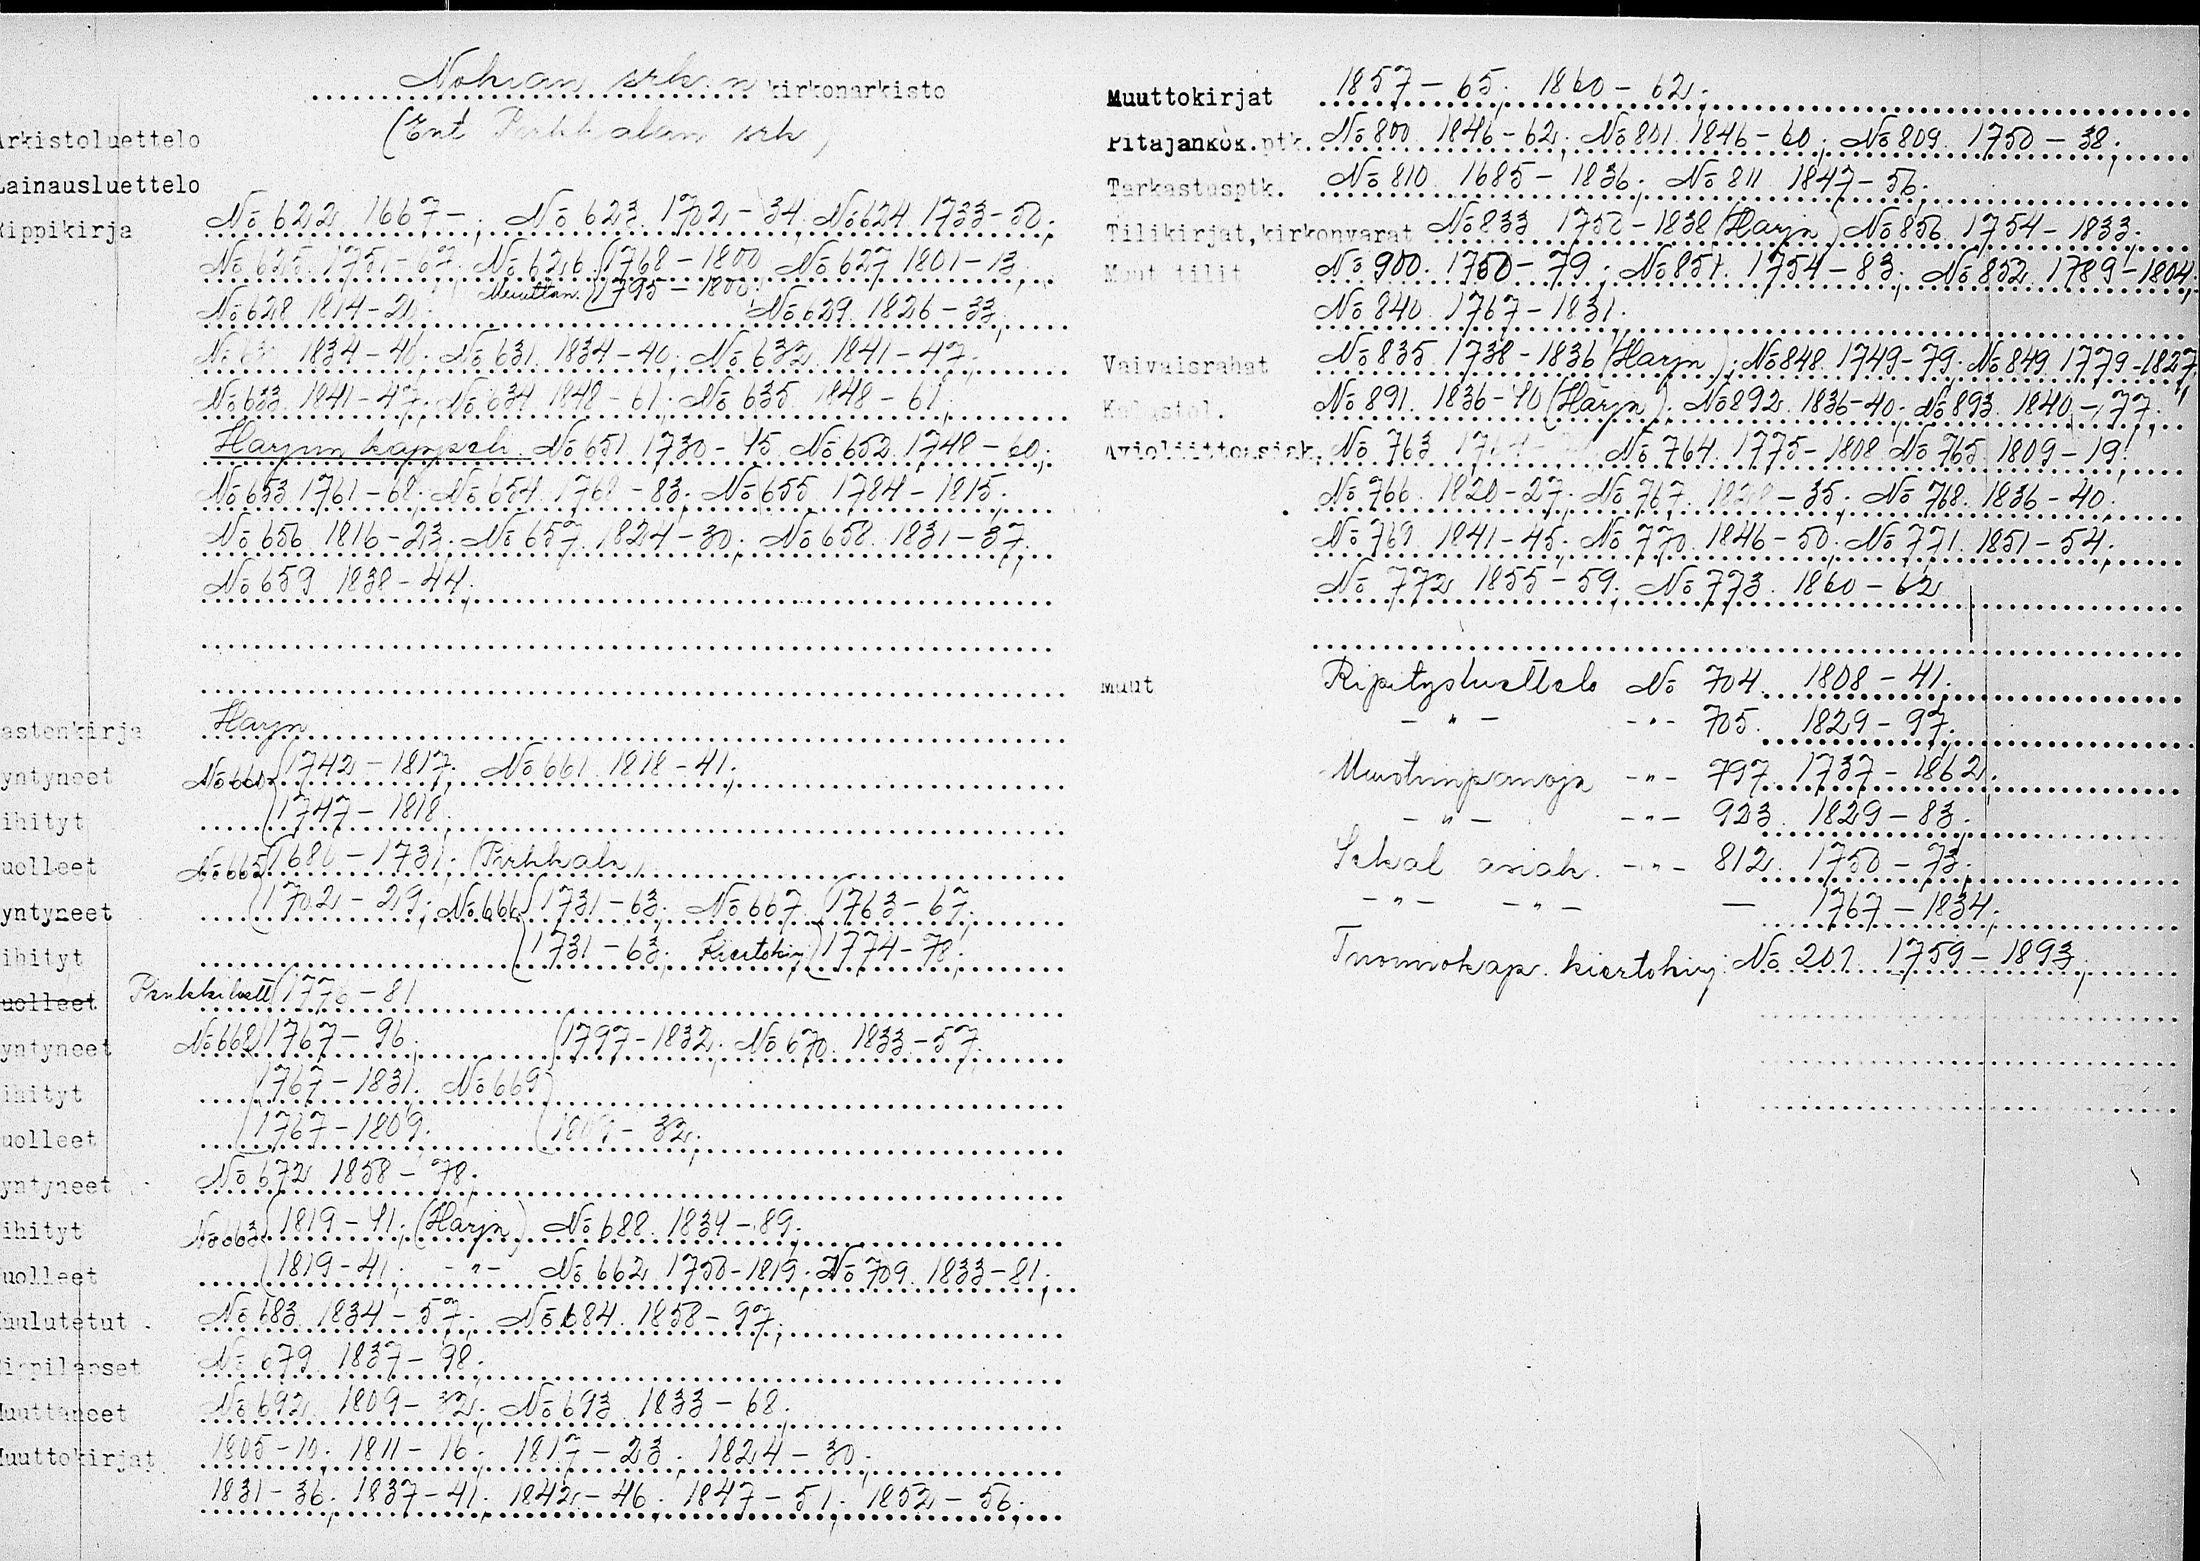 Nokian srk:n kirkonarkisto
(Ent Pirkkalan srk)
Arkistoluettelo
Lainausluettelo
Rippikirja No 622 1667-; No 623 1702-34; No 624 1733-50;
No 625 1751-67; No 626 (1768-1800 No 627 1801-13;
No 628 1814-20; Muuttan. (1795-1800; No 629 1826-33;
1834-40; No 631 1834-40; No 632 1841-47;
No 633 1841-47; No 634 1848-61; No 635 1848-61;
Harjun kappeli. No 651 1730-45 No 652 1748-60;
No 653 1761-68; No 654 1768-83; No 655 1784-1815;
No 656 1816-23; No 657 1824-30; No 658 1831-37;
No 659 1838-44;
astenkirja Harjn
yntyneet No 660 (1742-1817; No 661 1818-41;
ihityt (1747-1818
uolleet No 665 (1686-1731; (Pirkkala)
yntyneet (1702-29; No 666 (1731-63; No 667 (1763-67;
ihityt (1731-63; Kiertokirj (1774-78;
uolleet Penkkiluett (1776-81
yntyneet No 668 (1767-96; (1797-1832; No 670 1833-57;
ihityt (1767-1831. No 669
uolleet (1767-1809. 32;
yntyneet No 672 1858-78;
ihityt No 663 (1819-41; (Harjn) No 688 1834-89;
uolleet (1819-41; -"- No 662 1750-1819; No 709 1833-81;
uulutetut. No 683 1834-57; No 684 1858-97;
ippilapset No 679 1837-98;
Muuttaneet No 692 1809-32; No 693 1833-68;
Muuttokirjat 1805-10; 1811-16; 1817-23; 1824-30;
1831-36; 1837-41; 1842-46; 1847-51; 1852-56;
Muuttokirjat 1857-65; 1860-62;
Pitäjänkok.ptk. No 800 1846-62; No 801 1846-60; No 809 1750-38;
Tarkastusptk. No 810 1685-1836; No 811 1847-56;
Tilikirjat, kirkonvarat No 833 1750-1838 (Harjn) No 856 1754-1833;
Muut tilit No 900. 1750-79; No 851. 1754-83; No 852 1789-1804;
No 840 1767-1831.
Vaivaisrahat No 835 1738-1836 (Harjn); No 848 1749-79; No 849 1779-1827;
No 891. 1836-40 (Harjn); No 892 1836-40; No 893. 1840-77;
Avioliittoasiak. No 763 No 764. 1775-1808 No 765 1809-19;
No 766. 1820-27; No 767. 35; No 768. 1836-40;
No 769 1841-45; No 770 1846-50; No 771. 1851-54;
No 772 1855-59; No 773. 1860-62
Muut Ripitysluettelo No 704 1808-41.
-"- -"- 705. 1829-97.
Muistiinpanoja -"- 797 1737-1862.
-"- -"- 923 1829-83.
Sekal asiak. -"- 812. 1750-73;
-"- -"- — 1767-1834;
Tuomiokap. kiertokirj: No 201 1759-1893;